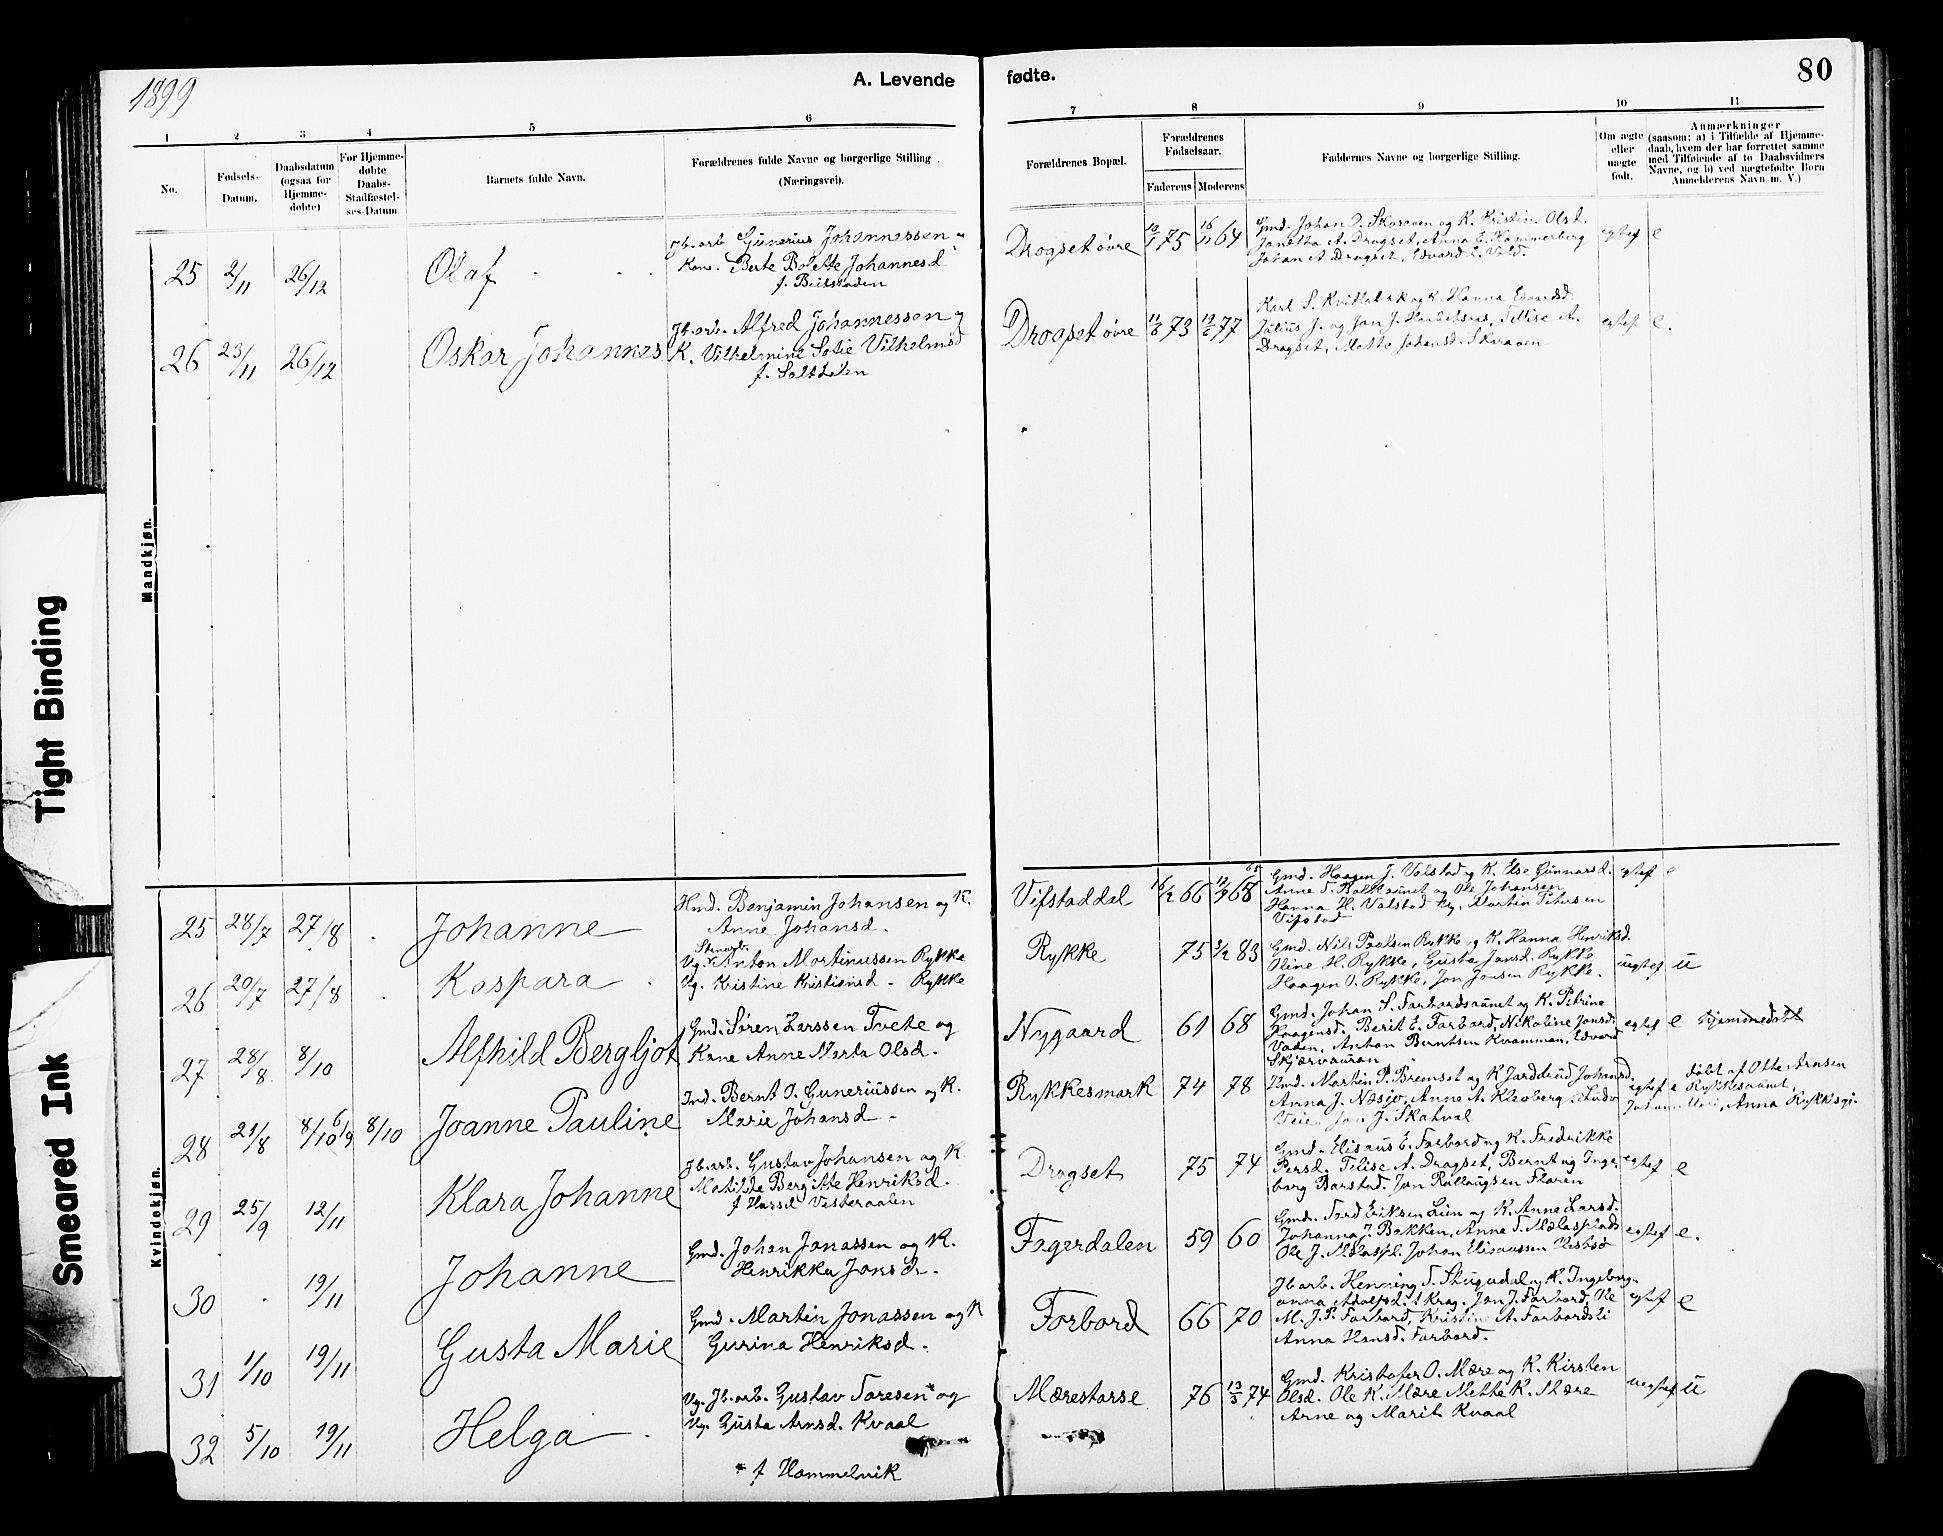 1899
A. Levende fødte.
80
1 2 3 4 5 6 7 8 9 10 11
No.
Fødsels-
Datum.
Daabsdatum
(ogsaa for
Hjemme-
døbte)
For Hjemme-
døbte
Daabs-
Stadfæstel-
ses-Datum.
Barnets fulde Navn.
Forældrenes fulde Navne og borgerlige Stilling
(Næringsvei).
Forældrenes Bopæl.
Forældrenes
Fødselsaar.
Faderens Moderens
Faddernes Navne og borgerlige Stilling.
Om ægte
eller
uægte
født.
Anmærkninger
(saasom: a) i Tilfælde af Hjemme-
daab, hvem der har forrettet samme
med Tilføiende af to Daabsvidners
Navne, og b) ved uægtefødte Børn
Anmelderens Navn m. V.)
Mandkjøn.
25 2/11 26/12 Olaf
Jb.arb Gunerius Johannessen
Kone. Berte Bolette Johannesd
f. Beitstaden
Drogset øvre 75 16/11 64
Gmd. Johan O. Skoraaen og K. Kristin Olsd.
Janetta A. Drogset, Anna E. Hammerberg
Johan A Drogset, Edvard L. Vold.
egtef e
26 23/11 26/12 Oskar Johannes
Jb.arb. Alfred Johannessen og
K. Vilhelmine Sofie Vilhelmsd
f. Saltdalen
Drogset øvre 11/8 73 77
Karl S. Kvittabak og K. Hanna
Julius J. og Jon J. Tellise A.
Drogset, Mette Johansd. Skoraaen
egtef e.
Kvindekjøn.
25 28/7 27/8 Johanne
Hmd. Benjamin Johansen og K.
Anne Johansd.
Vifstaddal 16/2 66 12/9 68 65
Gmd. Haagen J. Valstad og K. Else Gunnarsd.
Anne T. og Ole Johansen
Hanna H. Valstad Ug. Martin Petersen
Vifstad
egtef e
26 20/7 27/8 Kaspara
Stenarb.
Ug. Anton Martinussen Rykke
Ug. Kristine Kristiansd - Rykke
Rykke 75 3/2 83
Gmd. Nils Paulsen Rykke og K. Hanna Henriksd.
Oline H. Rykke, Gusta Jonsd. Rykke
Haagen O. Rykke, Jon Jonsen Rykke.
uegtef u
27 28/8. 8/10 Alfhild Bergljot
Gmd. Søren Larssen Tvete og
Kone Anne Marta Olsd.
Nygaard 61 68
Gmd. Johan S. Forbordsaunet og K. Petrine
Haagensd. Berit E. Forbord, Nikoline Jonsd.
Vaden, Anton Berntsen Kvamman, Edvard
Skjærvauran
egtef e hjemmedøbt
28 21/8 8/10 6/9 8/10 Joanne Pauline
Ind. Bernt O. Guneriussen og K.
Marie Johansd -
Rykkesmark 74 78
Hmd. Martin P. Bremset og K Jardtrud Johansd.
Anna J. Næsjø, Anne A. Kleoberg, Ludv
Veie, Jon J. Skatval
egtef e
døbt af Otte Arnsen
Rykkesaunet,
Johan, Anna Rykkesgj.
29 25/9 12/11 Klara Johanne
Jb.arb. Gustav Johansen og K.
Matilde Bergitte Henriksd.
f Hassel Vesteraalen
Drogset 75 74
Gmd. Elisæus E. Forbord og K. Fredrikke
Persd. Telise A. Drogset, Bernt og Inge-
borg Barstad. Jon Rollaugsen Floren
egtef e
30 19/11 Johanne
Gmd. Johan Jonassen og K.
Henrikka Jonsd.
Fagerdalen 59 60
Gmd. Tord Eriksen Lien og K. Anne Larsd.
Johanna J. Bakken, Anne T. Mælasplads
Ole J. Mælaspl. Johan Elisæussen
egtef e.
31 1/10 19/11 Gusta Marie
Gmd. Martin Jonassen og K
Gurina Henriksd.
Forbord 66 70
Jb.arb. Henning T. Stugudal og K. Ingeborg-
anna Adolfsd. f Krag. Jon J. Forbord, Ole
M. J. P. Forbord, Kristine A. Forbordsli
Anna Hansd. Forbord.
egtef e
32 5/10 19/11 Helga
Ug. Jb.arb. Gustav Toresen* og
Ug. Gusta Arnsd. Kvaal
* f Hommelvik
Mærestarse 76 13/3 74
Gmd. Kristofer O. Mære og K. Kirsten
Olsd. Ole K. Mære Mette K. Mære
Arne og Marit Kvaal
uegtef u
Tight Binding
Smeared Ink